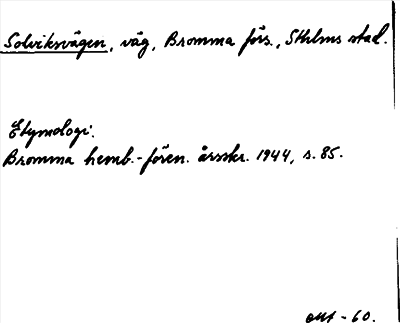 Solviksvägen, väg, Bromma förs., Sthlms stad.
Etymologi.
Bromma hemb.-fören. årsskr. 1944, s. 85.
okt - 60.